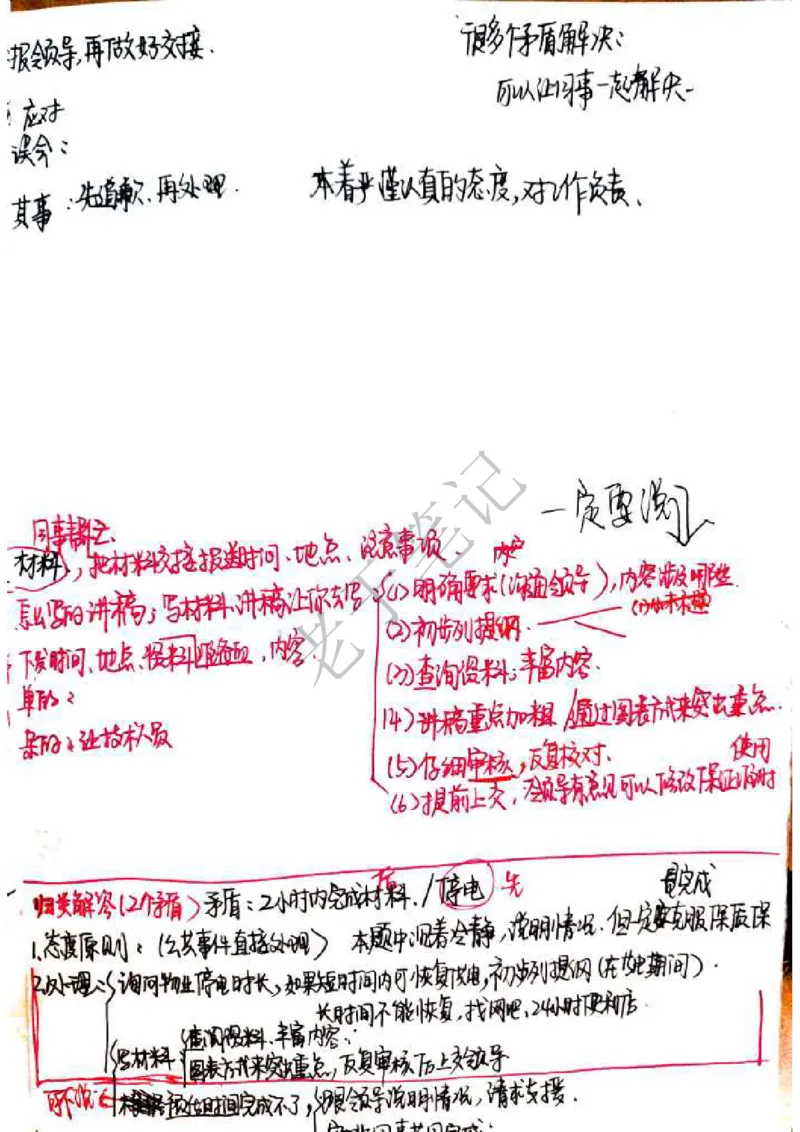 报领导,再做好交接.
很多个矛盾解决:
可以让同事一起解决
应对
误会:
其事:先道歉、再处理.
本着严谨认真的态度,对工作负责、
一定要说
同事帮忙
材料,把材料交接报送时间、地点、注意事项、
怎么写的讲稿;写材料、讲稿让你去写
下发时间、地点、资料 ,内容.
单的:
杂的:让技术人员
(1)明确要求(沟通领导),内容涉及哪些
(2)初步列提纲.
(3)查询资料;丰富内容.
(4)讲稿重点加粗/通过图表方式来突出重点.
(5)仔细审核,反复校对.
(6)提前上交,领导有意见可以修改保证临时使用
老丁笔记
归类解答(2个矛盾)矛盾:2小时内完成材料./停电 先
后
1.态度原则:(公共事件直接处理) 本题中沉着冷静,说明情况.但一定要克服保质保量完成
2.处理:询问物业停电时长,如果短时间内可恢复供电,初步列提纲(在此期间).
长时间不能恢复,找网吧,24小时便利店.
写材料
查阅资料、丰富内容:
图表方式来突出重点,反复审核后上交领导
可不说
短时间完成不了,跟领导说明情况,请求支援.